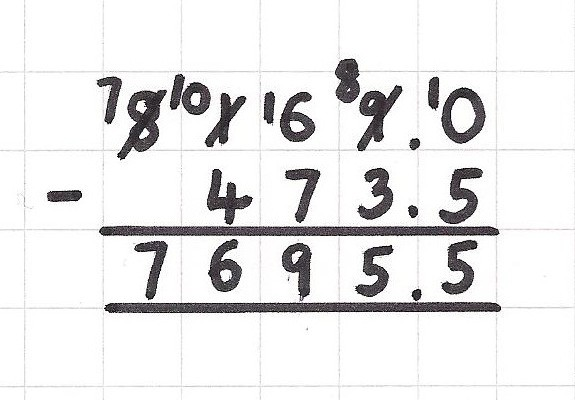 7 8 10 1 16 8 9 . 10
- 4 7 3 . 5
7 6 9 5 . 5